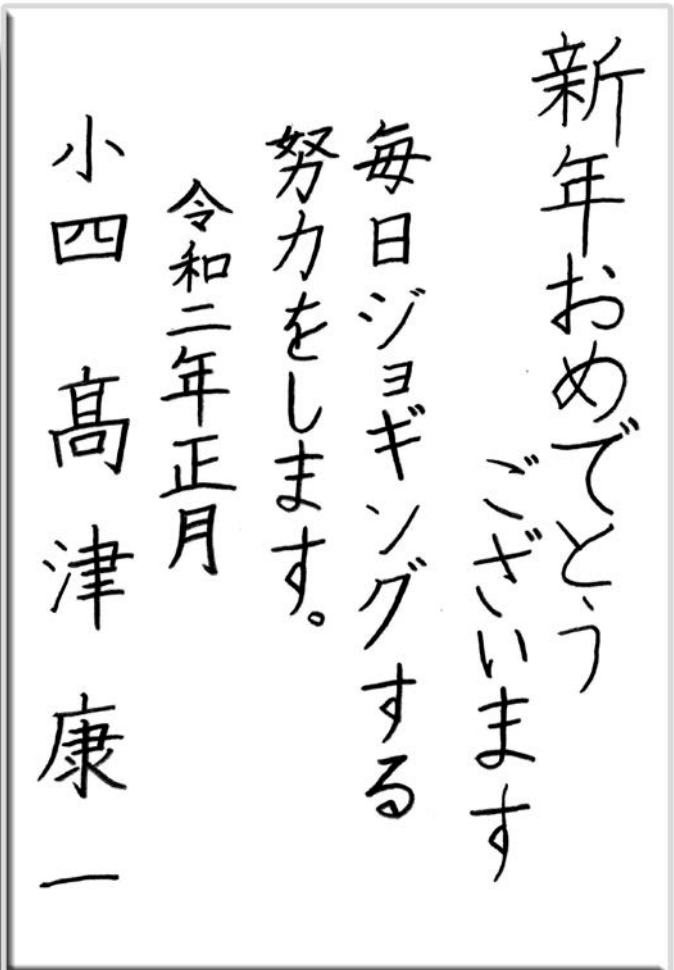 新年おめでとう
ございます
毎日ジョギングする
努力をします。
令和二年正月
小四 髙津康一